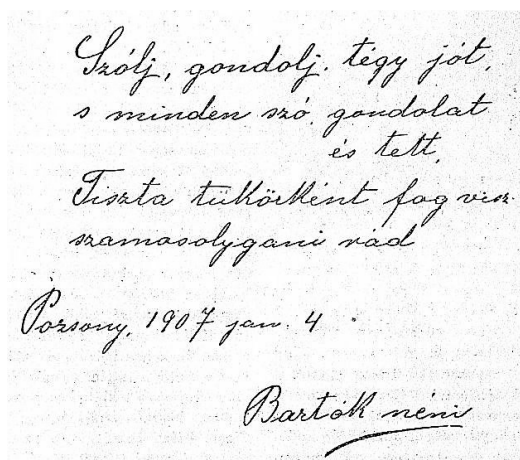 Szólj, gondolj, tégy jót,
s minden szó, gondolat
és tett,
Tiszta tükörként fog visz-
szamosolygani rád
Pozsony, 1907 jan. 4.
Bartók néni